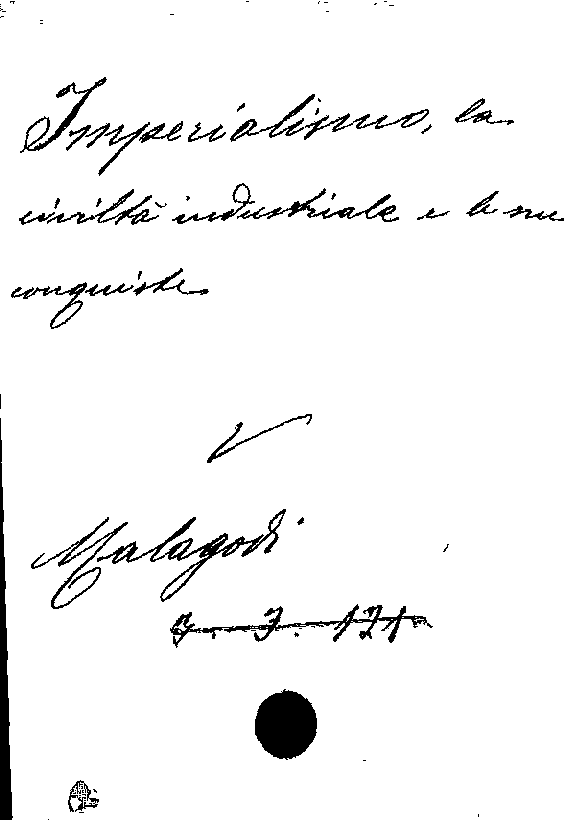 Imperialismo, la
civiltà industriale e le sue
conquiste.
V
Malagodi
7. 3. 121.